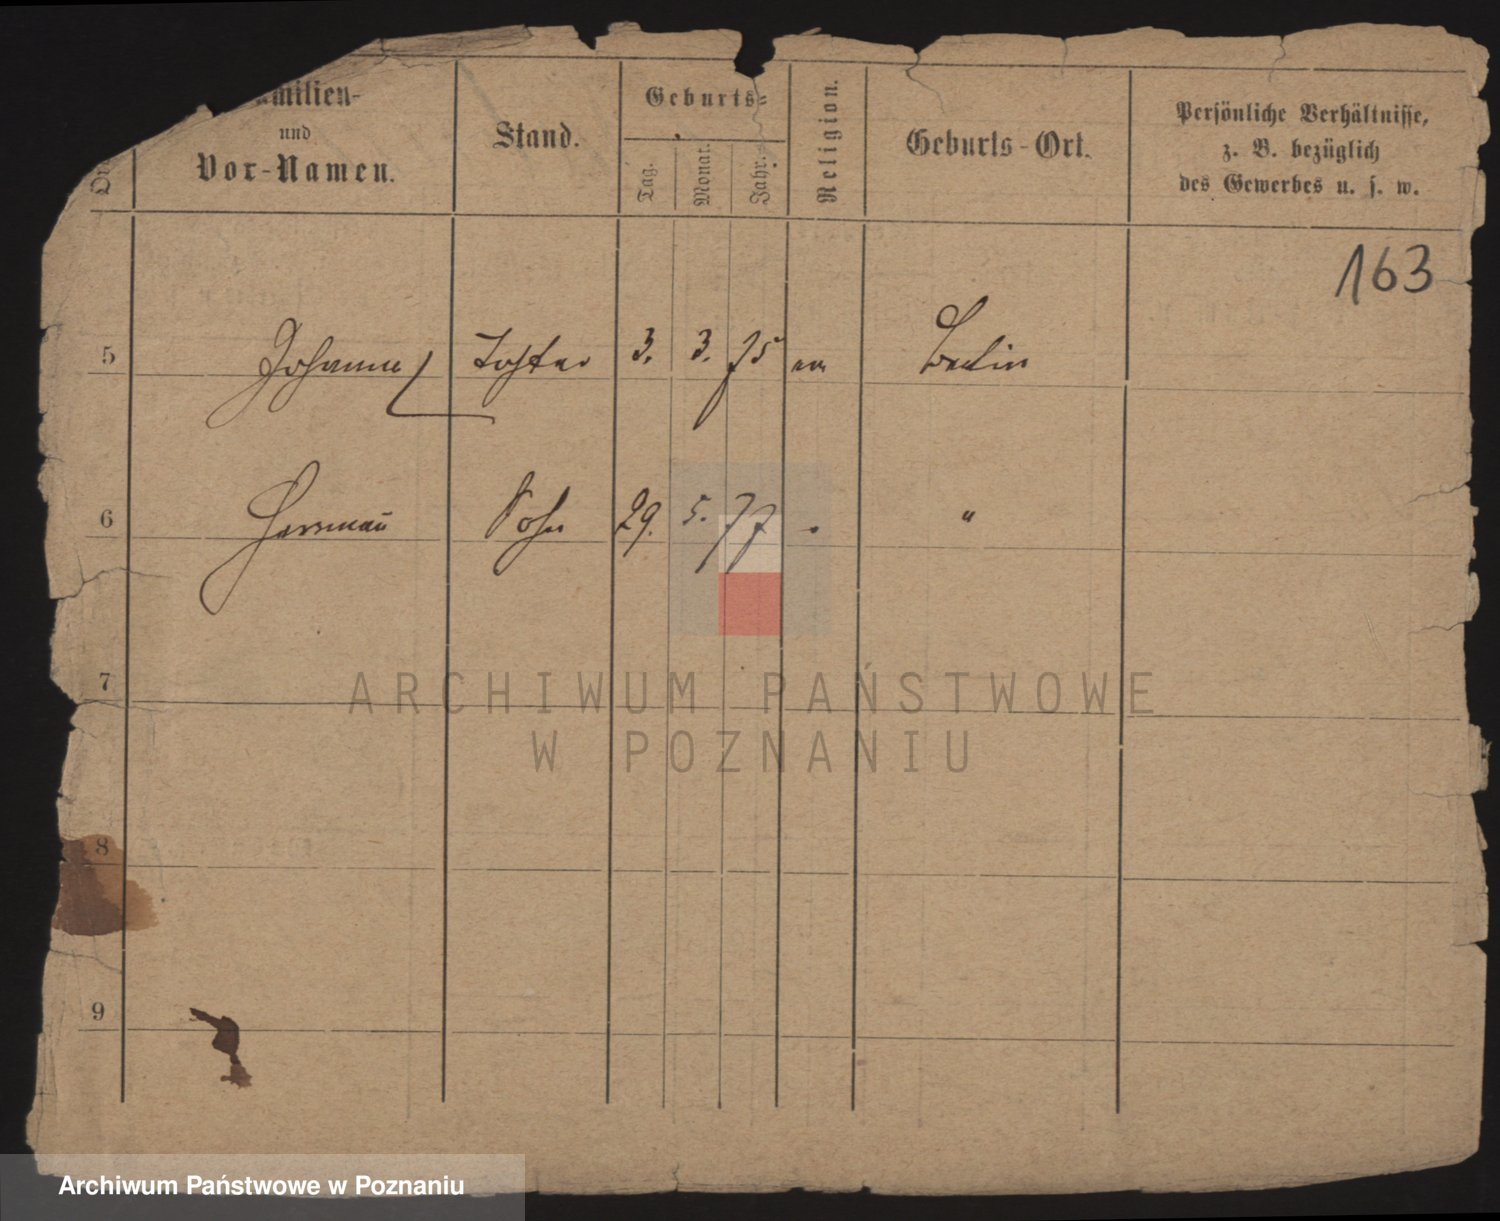 Familien-
und
Vor-Namen.
Stand.
Geburts-
Tag.
Monat.
Jahr.
Religion.
Geburts-Ort.
Persönliche Verhältnisse,
z. B. bezüglich
des Gewerbes u. s. w.
163
5 Johanna Tochter 3. 3. 75 ev Berlin
6 Hermann Sohn 29. 5. 77 " "
7
8
9
ARCHIWUM PAŃSTWOWE
W POZNANIU
Archiwum Państwowe w Poznaniu